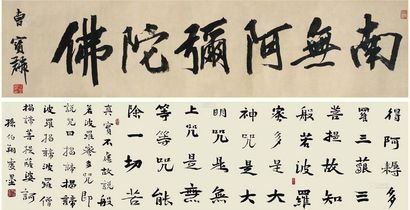 南無阿彌陀佛
曹寶麟
得阿耨多
羅三藐三
菩提故知
般若波羅
蜜多是大
神咒是大
明咒是無
上咒是無
等等咒能
除一切苦
真實不虛故說般
若波羅蜜多咒即
說咒曰揭諦揭諦
波羅揭諦波羅僧
揭諦菩提薩婆訶
孫伯翔